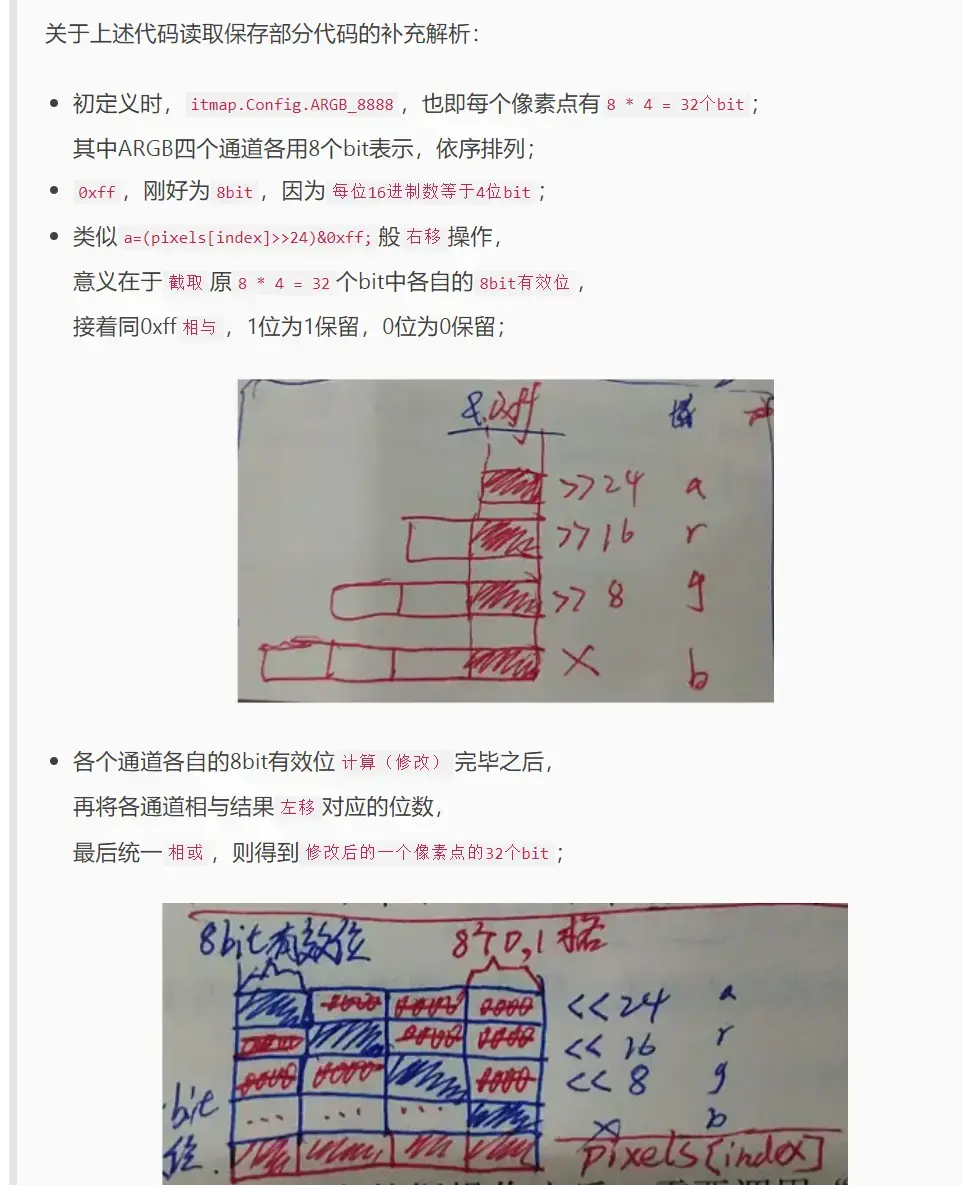 关于上述代码读取保存部分代码的补充解析：
初定义时， itmap.Config.ARGB_8888 ，也即每个像素点有 8 * 4 = 32个bit ；
其中ARGB四个通道各用8个bit表示，依序排列；
0xff ，刚好为 8bit ，因为 每位16进制数等于4位bit ；
类似 a=(pixels[index]>>24)&0xff; 般 右移 操作，
意义在于 截取 原 8 * 4 = 32 个bit中各自的 8bit有效位 ，
接着同0xff 相与 ，1位为1保留，0位为0保留；
&0xff
>>24 a
>>16 r
>> 8 g
× b
各个通道各自的8bit有效位 计算（修改） 完毕之后，
再将各通道相与结果 左移 对应的位数，
最后统一 相或 ，则得到 修改后的一个像素点的32个bit ；
8bit有效位 8个0,1
0000 0000 0000 <<24 a
0000 0000 << 16 r
0000 0000 0000 << 8 g
bit ... ... ... × b
位. pixels[index]